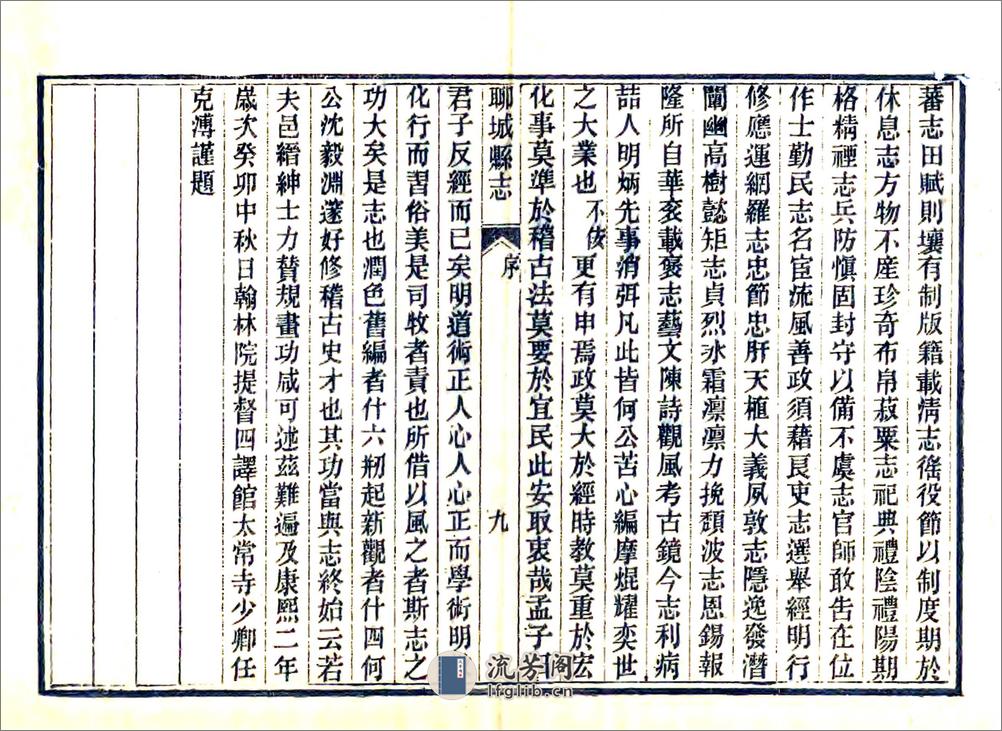 蕃志田賦則壤有制版籍載淸志徭役節以制度期於
休息志方物不產珍奇布帛菽粟志祀典禮陰禮陽期
格精禋志兵防愼固封守以備不虞志官師敢吿在位
作士勤民志名宦流風善政須藉良吏志選舉經明行
修應運網羅志忠節忠肝天植大義夙敦志隱逸發潛
闡幽高樹懿矩志貞烈氷霜凛凛力挽頽波志恩錫報
隆所自華袞載褒志藝文陳詩觀風考古鏡今志利病
喆人明炳先事消弭凡此皆何公苦心編摩焜耀奕世
之大業也不佞更有申焉政莫大於經時敎莫重於宏
化事莫準於稽古法莫要於宜民此安取衷哉孟子
聊城縣志 序 九
君子反經而已矣明道術正人心人心正而學術明
化行而習俗美是司牧者責也所借以風之者斯志之
功大矣是志也潤色舊編者什六刱起新觀者什四何
公沈毅淵邃好修稽古史才也其功當與志終始云若
夫邑縉紳士力贊規畫功咸可述茲難遍及康熙二年
歲次癸卯中秋日翰林院提督四譯館太常寺少卿任
克溥謹題
流芳阁
lfglib.cn